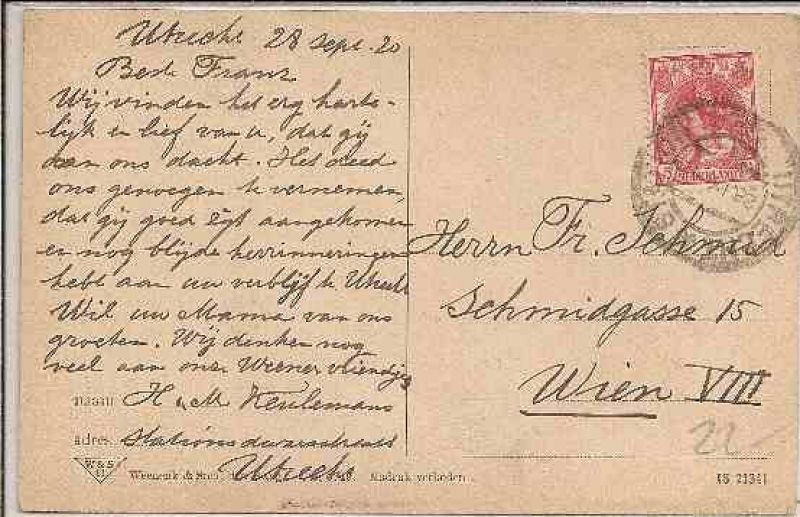 Utrecht 28 Sept. 20
Beste Franz
Wij vinden het erg harte-
lijk en lief van u, dat gij
aan ons dacht. Het deed
ons genoegen te vernemen,
dat gij goed zijt aangekomen
en nog blijde herrinneringen
hebt aan uw verblijf te Utrecht
Wil uw Mama van ons
groeten. Wij denken nog
veel aan onze Weener vriendje
naam H & M Keulemans
adres. Stationsdwarsstraat
Utrecht
W&S
Weenenk & Snel
Nadruk verboden
46 21341
5
NEDERLAND
Herrn Fr. Schmid
Schmidgasse 15
Wien VIII
22